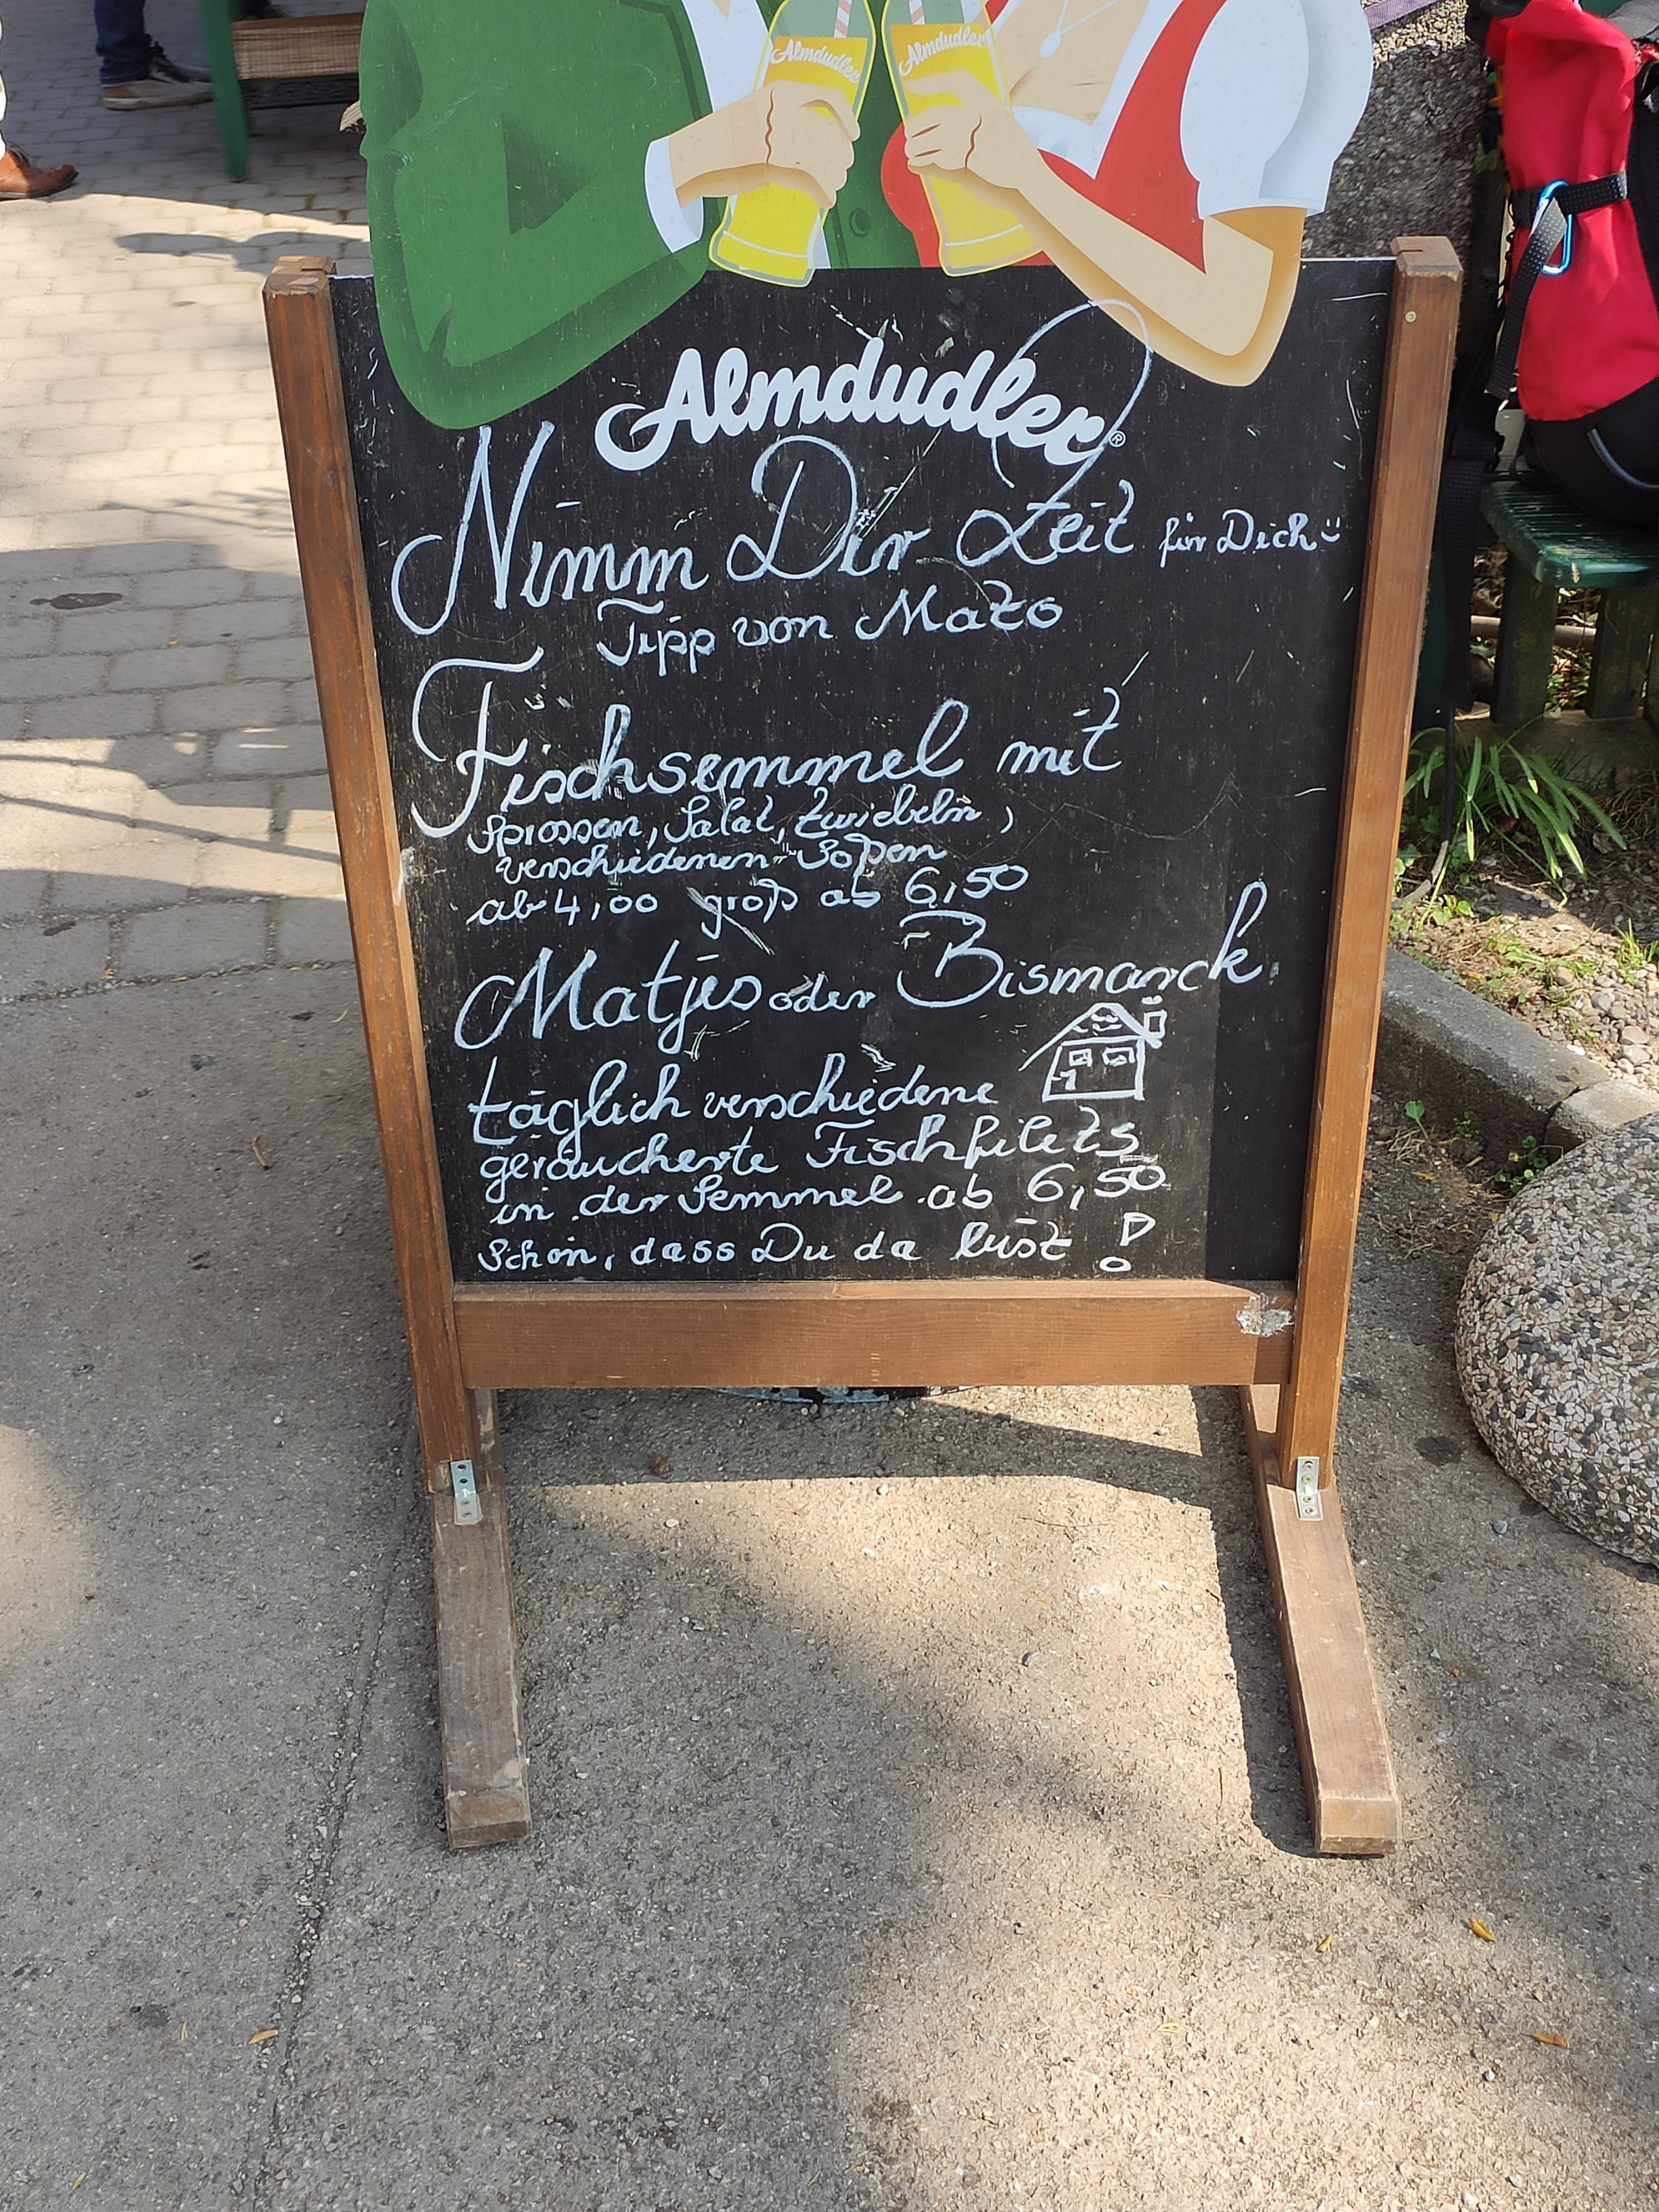 Almdudler Almdudler
Almdudler®
Nimm Dir Zeit für Dich
Tipp von Mazo
Fischsemmel mit
Sprossen, Salat, Zwiebeln,
verschiedenen Soßen
ab 4,00 groß ab 6,50
Matjes oder Bismarck
täglich verschiedene
geräucherte Fischfilets
in der Semmel ab 6,50
Schön, dass Du da bist!